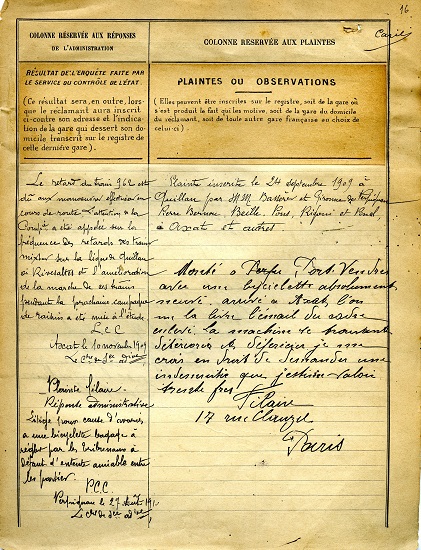 16
COLONNE RÉSERVÉE AUX RÉPONSES
DE L'ADMINISTRATION
COLONNE RÉSERVÉE AUX PLAINTES
RÉSULTAT DE L'ENQUÊTE FAITE PAR
LE SERVICE DU CONTRÔLE DE L'ÉTAT
(Ce résultat sera, en outre, lors-
que le réclamant aura inscrit
ci-contre son adresse et l'indica-
tion de la gare qui dessert son do-
micile transcrit sur le registre de
cette dernière gare.)
PLAINTES OU OBSERVATIONS
(Elles peuvent être inscrites sur le registre, soit de la gare où
s'est produit le fait qui les motive, soit de la gare du domicile
du réclamant, soit de toute autre gare française au choix de
celui-ci.)
Le retard du train 962 est
dû aux manœuvres effectuées en
cours de route. L'attention de la
Compie a été appelée sur la
fréquence des retards des trains
mixtes sur la ligne de Quillan
à Rivesaltes et l'amélioration
de la marche de ces trains
pendant la prochaine campagne
de raisins a été mise à l'étude.
Axat le 10 novembre 1909
Plainte Filaire.
Réponse administrative
Litige pour cause d'avaries
à une bicyclette bagage à
régler par les tribunaux à
défaut d'entente amiable entre
les parties.
P.C.C
Perpignan le 27
Plainte inscrite le 24 septembre 1909 à
Quillan par MM. et
Pierre Beille, Pons, et
à Axat et autres
Port-Vendres
avec une bicyclette absolument
neuve. arrivé à Axat, l'on
me la livre l'émail du cadre
enlevé. La machine se trouvant
détériorée je me
crois en droit de demander une
indemnité que j'estime valoir
trente frs
Filaire
17 rue Clauzel
Paris